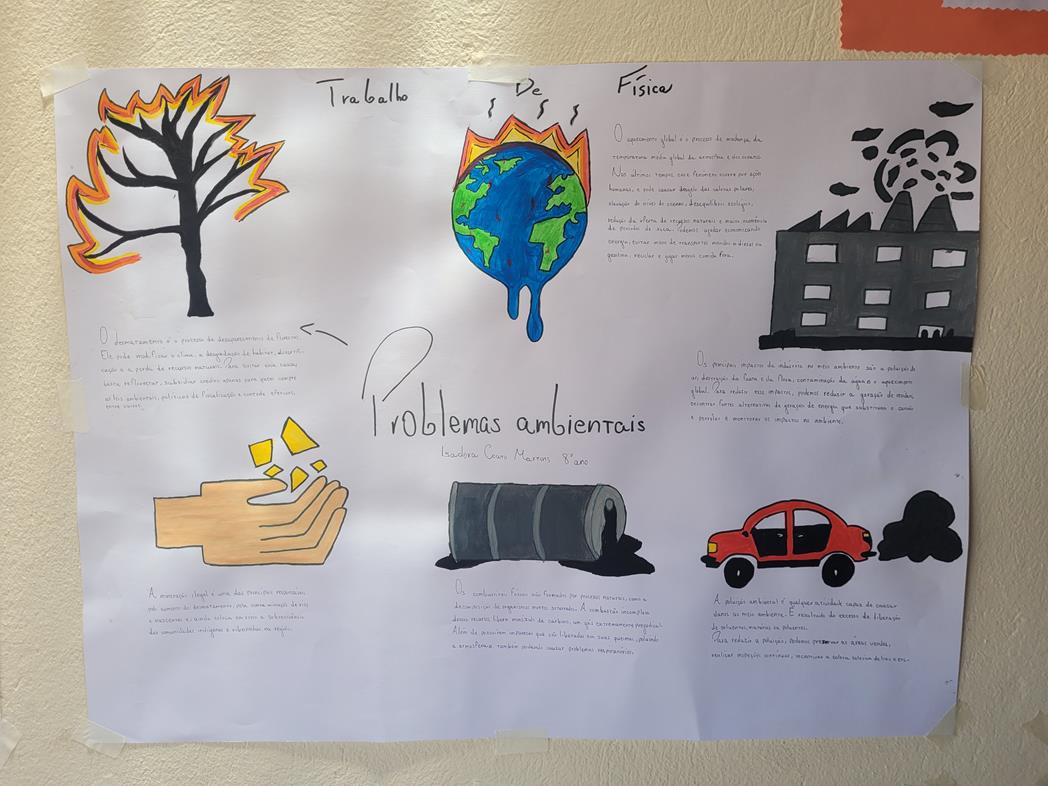 Trabalho De Física
O aquecimento global é o processo de mudança da
temperatura média global da atmosfera e dos oceanos.
Nos últimos tempos esse fenômeno ocorre por ações
humanas, e pode causar degelo das calotas polares,
elevação do nível do oceano, desequilíbrio ecológico,
redução da oferta de recursos naturais e maior
de períodos de seca. Podemos ajudar economizando
energia, evitar meios de transportes movidos a diesel ou
gasolina, reciclar e jogar menos comida fora.
O desmatamento é o processo de desaparecimento de florestas.
Ele pode modificar o clima, a degradação do habitat,
e a perda de recursos naturais. Para evitar essa causa,
basta reflorestar, subsidiar crédito apenas para quem cumpre
as leis ambientais, políticas de fiscalização e controle efetivas,
entre outros.
Os principais impactos da indústria no meio ambiente são a poluição do
ar, destruição da fauna e da flora, contaminação da água e o aquecimento
global. Para reduzir esses impactos, podemos reduzir a geração de resíduos,
encontrar fontes alternativas de geração de energia que substituam o carvão
e petróleo e monitorar os impactos no ambiente.
Problemas ambientais
Isadora Couto Martins 8°ano
A mineração ilegal é uma das principais responsáveis
pelo aumento do desmatamento, pela contaminação de rios
e nascentes e, ainda coloca em risco a sobrevivência
das comunidades indígenas e ribeirinhas na região.
Os combustíveis fósseis são formados por processos naturais, como a
decomposição de organismos mortos soterrados. A combustão incompleta
desses recursos libera monóxido de carbono, um gás extremamente prejudicial.
Além de possuírem impurezas que são liberadas em suas queimas, poluindo
a atmosfera e também podendo causar problemas respiratórios.
A poluição ambiental é qualquer atividade capaz de causar
danos ao meio ambiente. É resultado do excesso de liberação
de poluentes, matérias ou poluentes.
Para reduzir a poluição, podemos preservar as áreas verdes,
realizar inspeções contínuas, incentivar a coleta seletiva de lixo e etc.